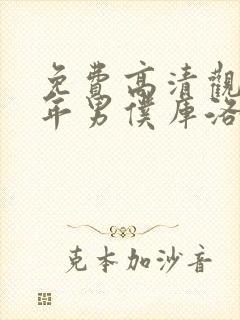 免費高清觀
年男僕庫洛
克本加沙音